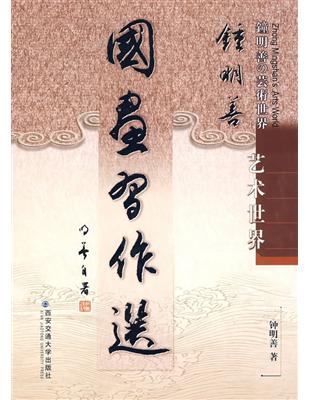 鐘明善の芸術世界
Zhong Mingshan's Arts World
艺术世界
鍾明善
國畫習作選
明善自署
钟明善 著
西安交通大学出版社
XI'AN JIAOTONG UNIVERSITY PRESS